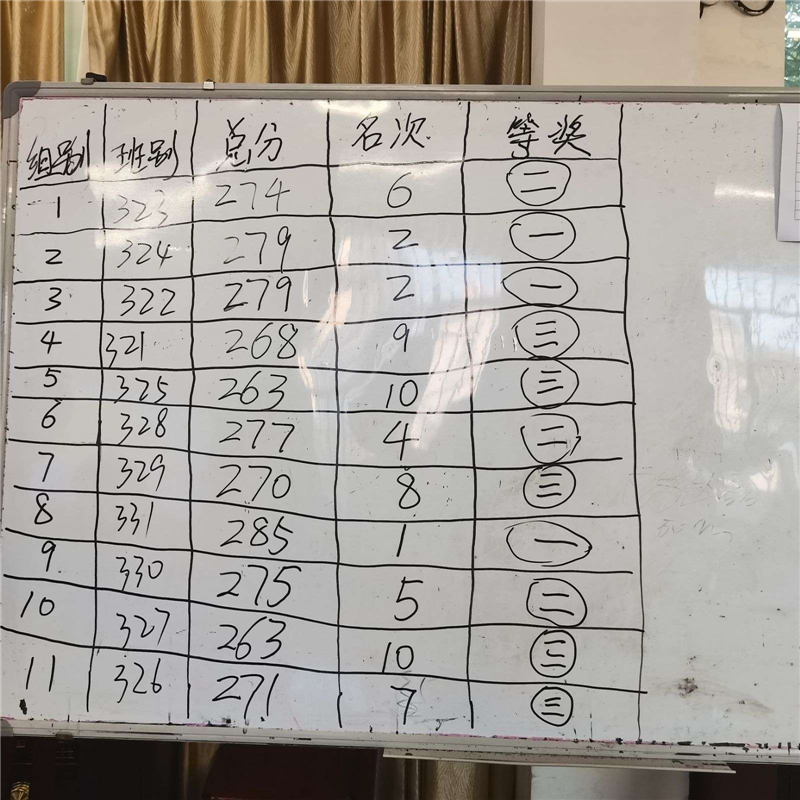 组别 班别 总分 名次 等奖
1 323 274 6 二
2 324 279 2 一
3 322 279 2 一
4 321 268 9 三
5 325 263 10 三
6 328 277 4 二
7 329 270 8 三
8 331 285 1 一
9 330 275 5 二
10 327 263 10 三
11 326 271 7 三